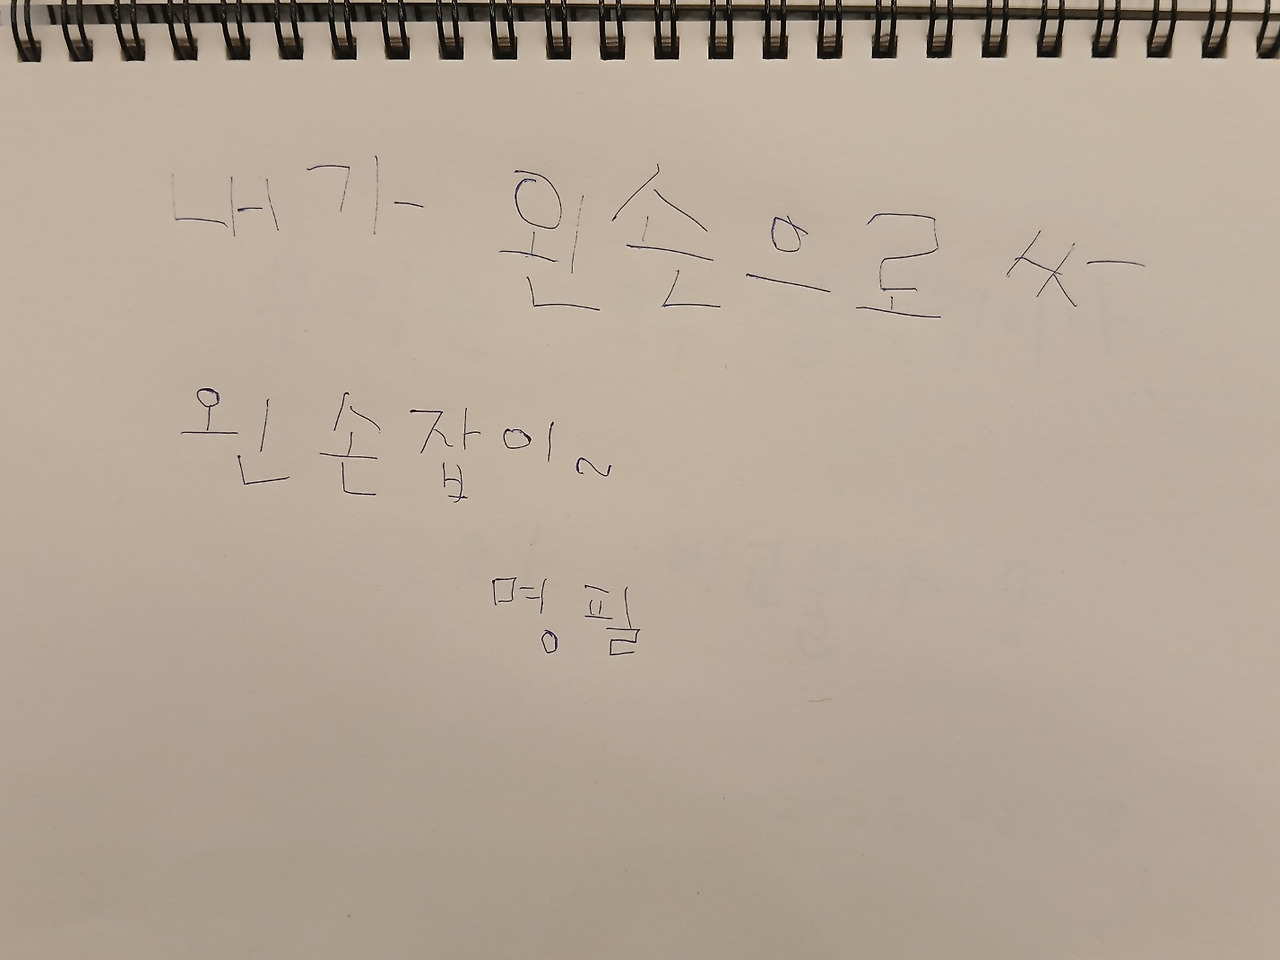 내가 왼손으로
왼손잡이~
명필